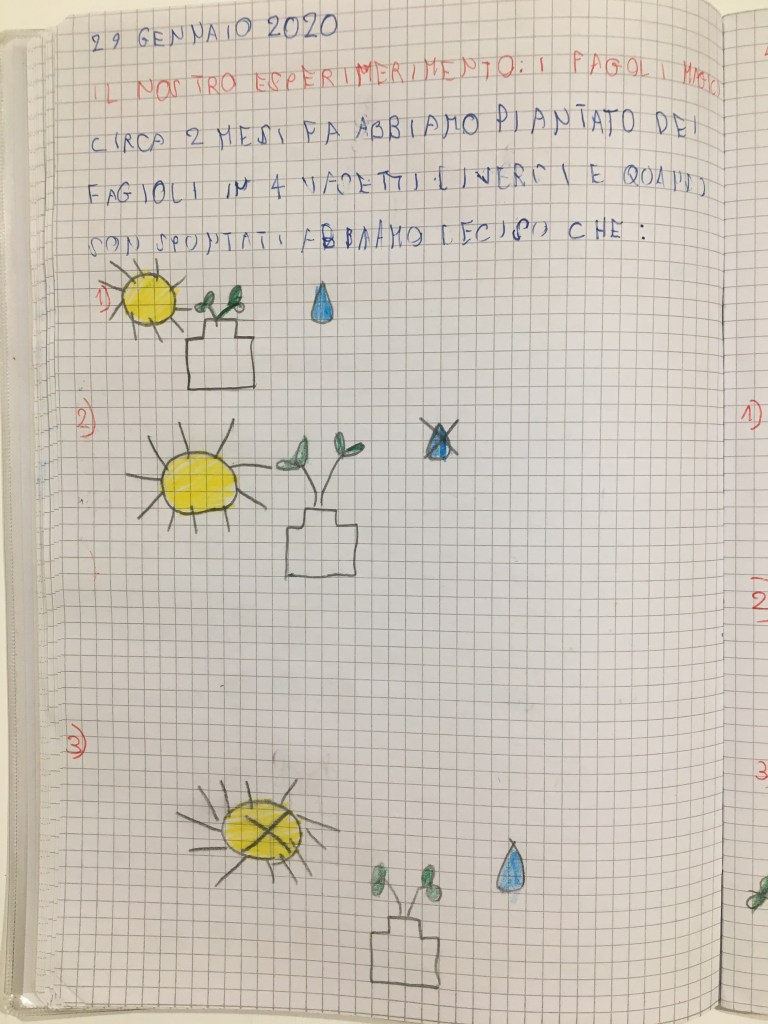 29 GENNAIO 2020
IL NOSTRO ESPERIMERIMENTO: I FAGOLI MAGICI
CIRCA 2 MESI FA ABBIAMO PIANTATO DEI
FAGIOLI IN 4 VASETTI DIVERSI E QUANDO
SON SPONTATI ABBIAMO DECISO CHE:
1)
2)
3)
1)
2
3